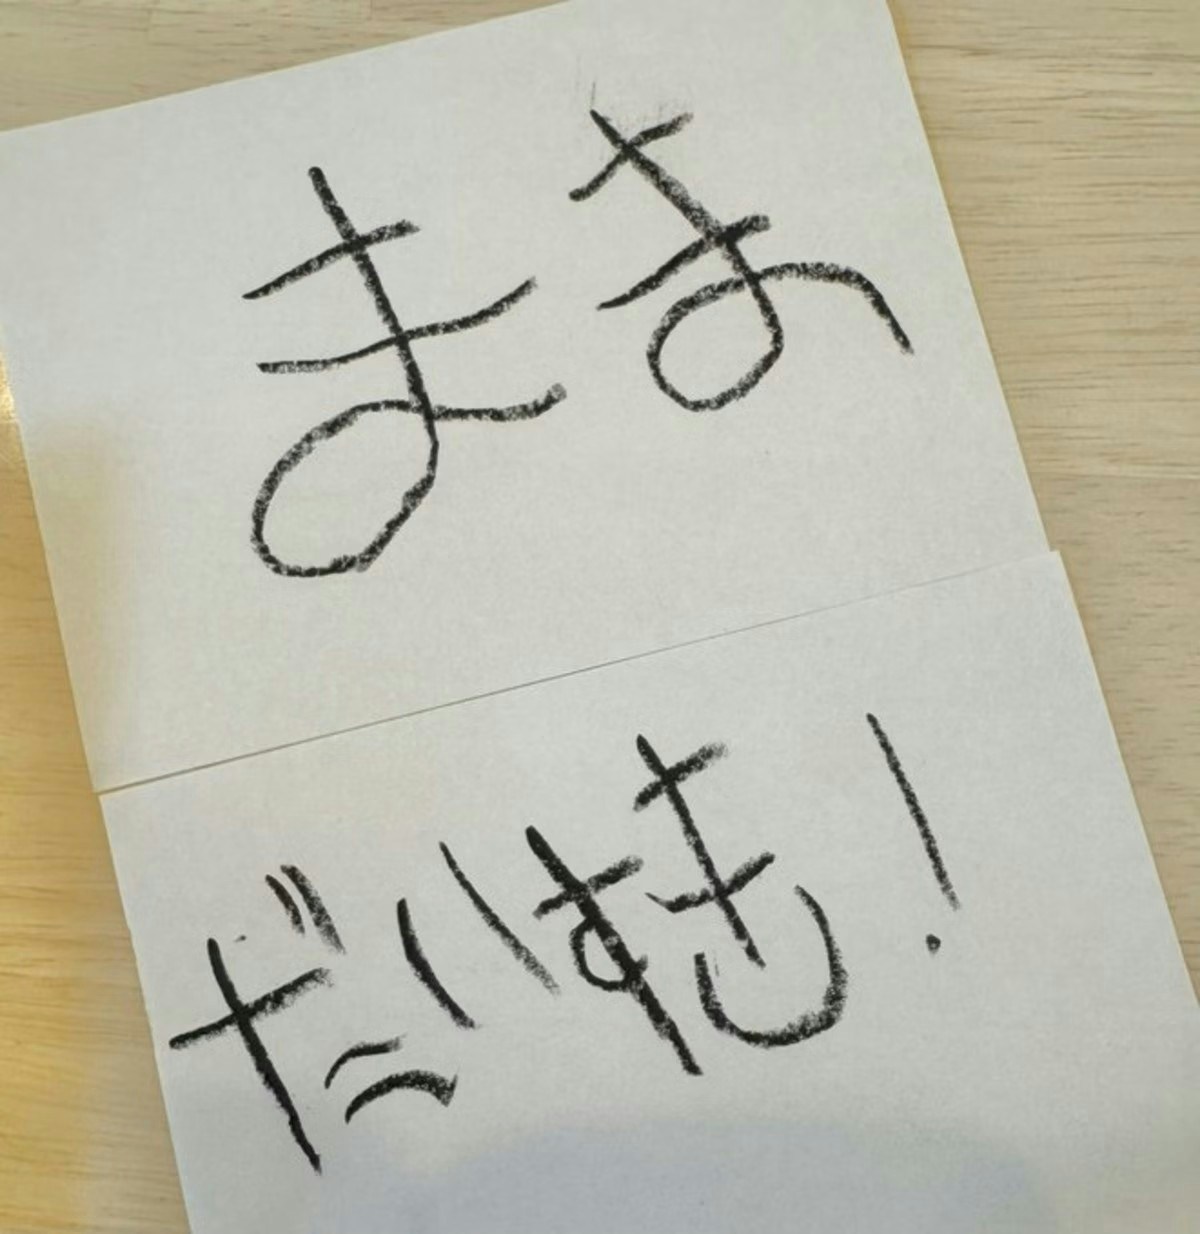 まま
だいすも!